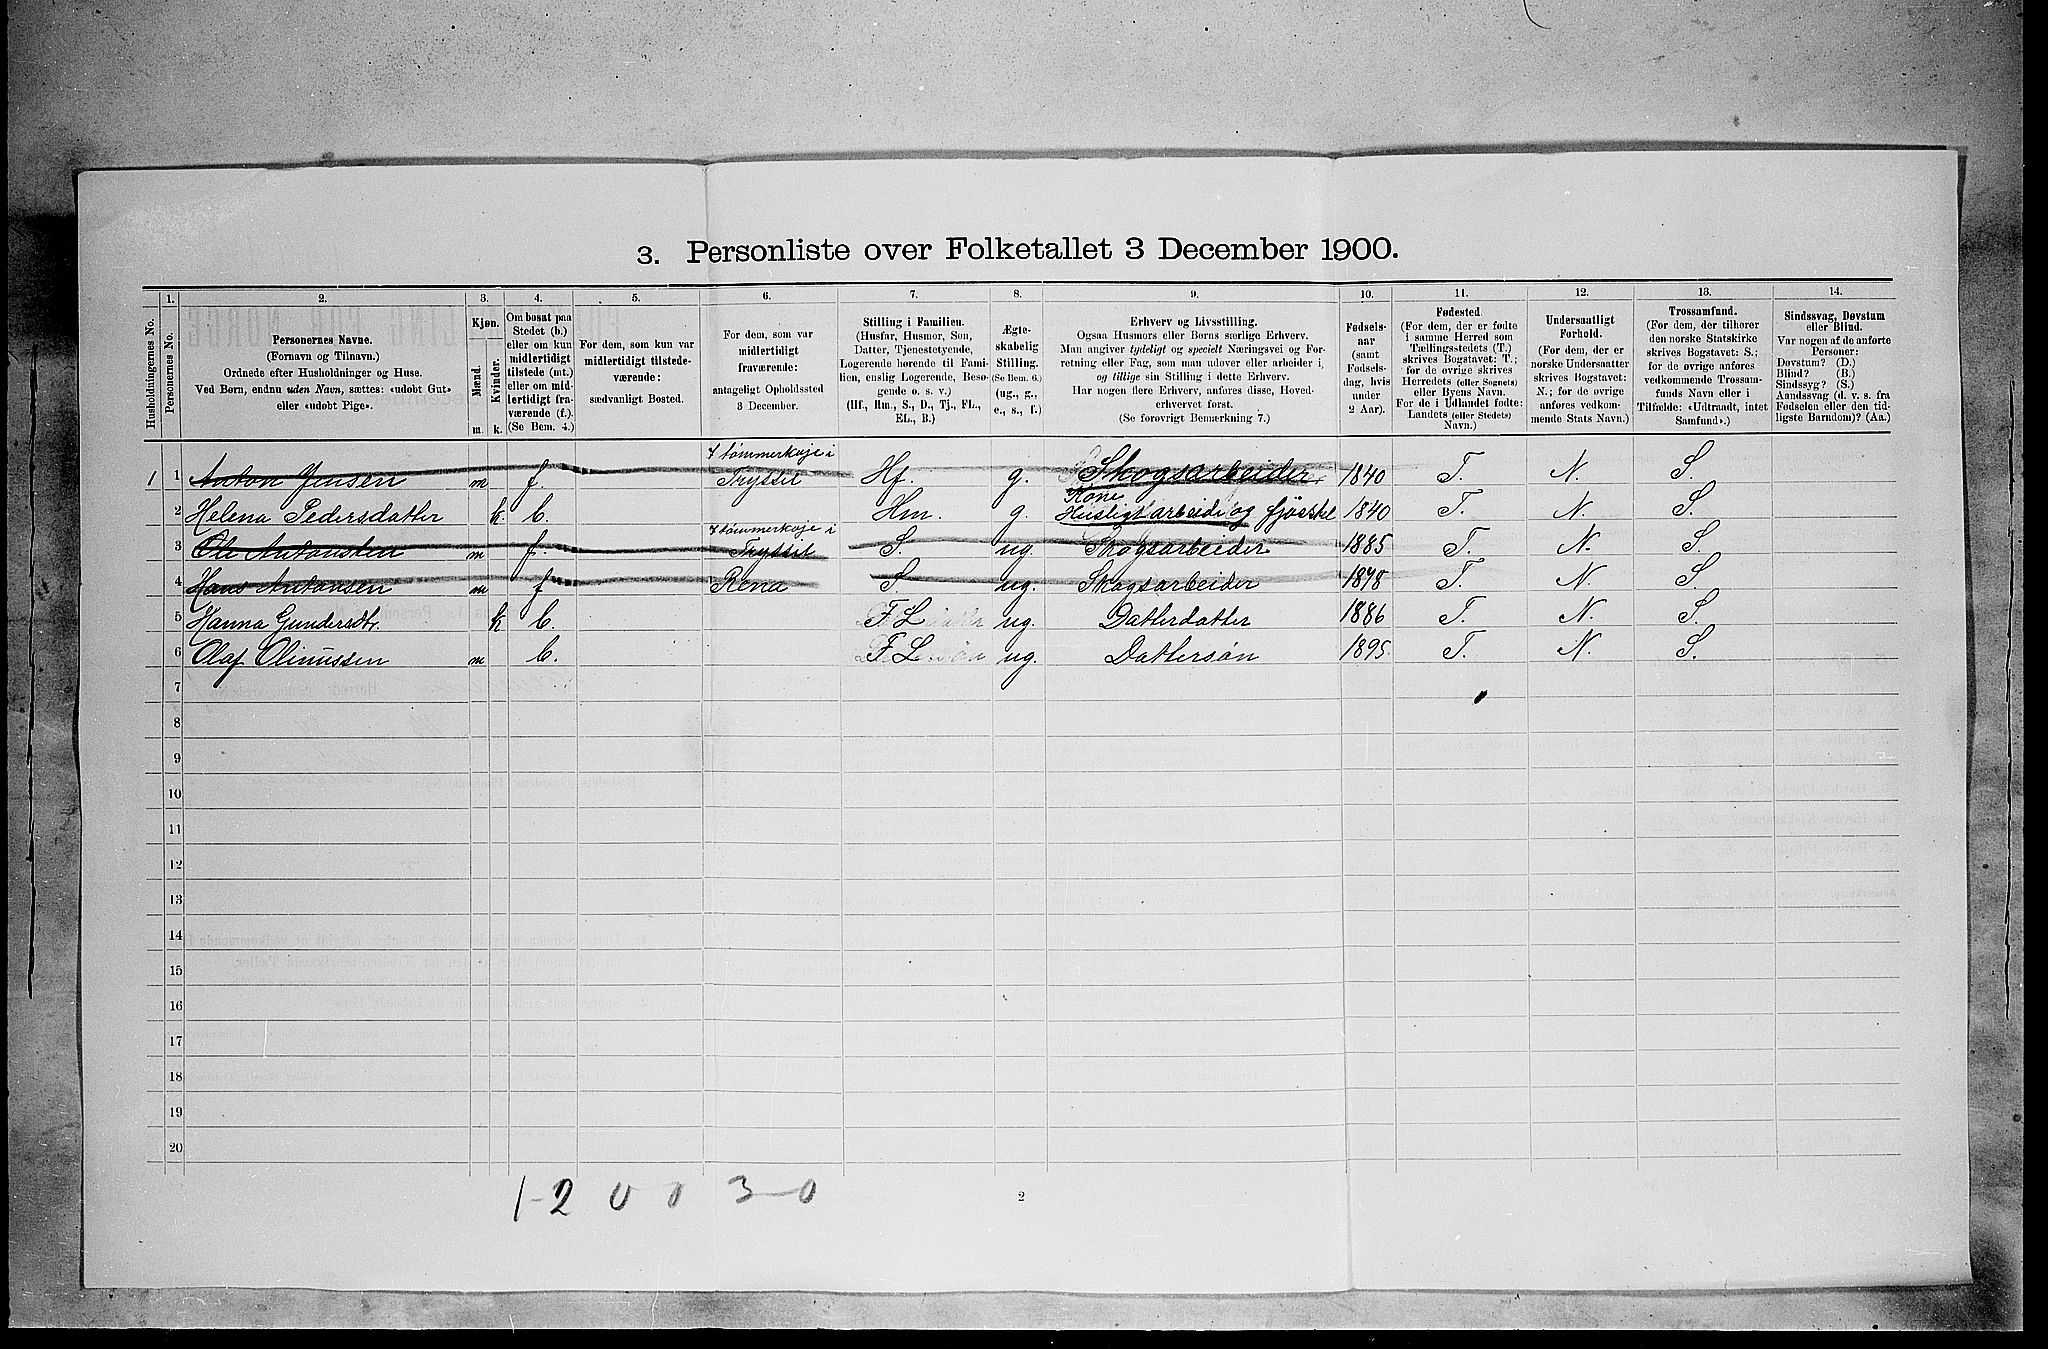 3. Personliste over Folketallet 3 December 1900.
1. 2. 3. 4. 5. 6. 7. 8. 9. 10. 11. 12. 13. 14.
Husholdningernes No.
Personernes No.
Personernes Navne.
(Fornavn og Tilnavn.)
Ordnede efter Husholdninger og Huse.
Ved Børn, endnu uden Navn, sættes: «udøbt Gut»
eller «udøbt Pige».
Kjøn.
Mænd.
Kvinder.
m. k.
Om bosat paa
Stedet (b.)
eller om kun
midlertidigt
tilstede (mt.)
eller om mid-
lertidigt fra-
værende (f.).
(Se Bem. 4.)
For dem, som kun var
midlertidigt tilstede-
værende:
sædvanligt Bosted.
For dem, som var
midlertidigt
fraværende:
antageligt Opholdssted
3 December.
Stilling i Familien.
(Husfar, Husmor, Søn,
Datter, Tjenestetyende,
Logerende hørende til Fami-
lien, enslig Logerende, Besø-
gende o. s. v.)
(Hf., Hm., S., D., Tj., FL.,
EL., B.)
Ægte-
skabelig
Stilling.
(Se Bem. 6.)
(ug., g.,
e., s., f.)
Erhverv og Livsstilling.
Ogsaa Husmors eller Børns særlige Erhverv.
Man angiver tydeligt og specielt Næringsvei og For-
retning eller Fag, som man udøver eller arbeider i,
og tillige sin Stilling i dette Erhverv.
Har nogen flere Erhverv, anføres disse, Hoved-
erhvervet først.
(Se forøvrigt Bemærkning 7.)
Fødsels-
aar
(samt
Fødsels-
dag, hvis
under
2 Aar).
Fødested.
(For dem, der er fødte
i samme Herred som
Tællingsstedets (T.)
skrives Bogstavet: T.;
for de øvrige skrives
Herredets (eller Sognets)
eller Byens Navn.
For de i Udlandet fødte:
Landets (eller Stedets)
Navn.)
Undersaatligt
Forhold.
(For dem, der er
norske Undersaatter
skrives Bogstavet:
N.; for de øvrige
anføres vedkom-
mende Stats Navn.)
Trossamfund.
(For dem, der tilhører
den norske Statskirke
skrives Bogstavet: S.;
for de øvrige anføres
vedkommende Trossam-
funds Navn eller i
Tilfælde: «Udtraadt, intet
Samfund».)
Sindssvag, Døvstum
eller Blind.
Var nogen af de anførte
Personer:
Døvstum? (D.)
Blind? (B.)
Sindssyg? (S.)
Aandssvag (d. v. s. fra
Fødselen eller den tid-
ligste Barndom)? (Aa.)
1 1 Anton Jensen m f. I tømmerkoje i Tryssil Hf. g. Skogsarbeider 1840 T. N. S.
2 Helena Pedersdatter k. b. Hm. g. Kone Husligt arbeide og fjøsstel 1840 T. N. S.
3 Ole Antonsten m f. I tømmerkoje i Tryssil S. ug Skogsarbeider 1885 T. N. S.
4 Hans Antonsen m f Rena S. ug. Skogsarbeider 1878 T. N. S.
5 Hanna Gundersdt. k b. FL ug. Datterdatter 1886 T. N. S.
6 Olaf Olinussen m b. FL ug. Dattersøn 1895 T. N. S.
7
8
9
10
11
12
13
14
15
16
17
18
19
20
1-2 0 0 3-0
2